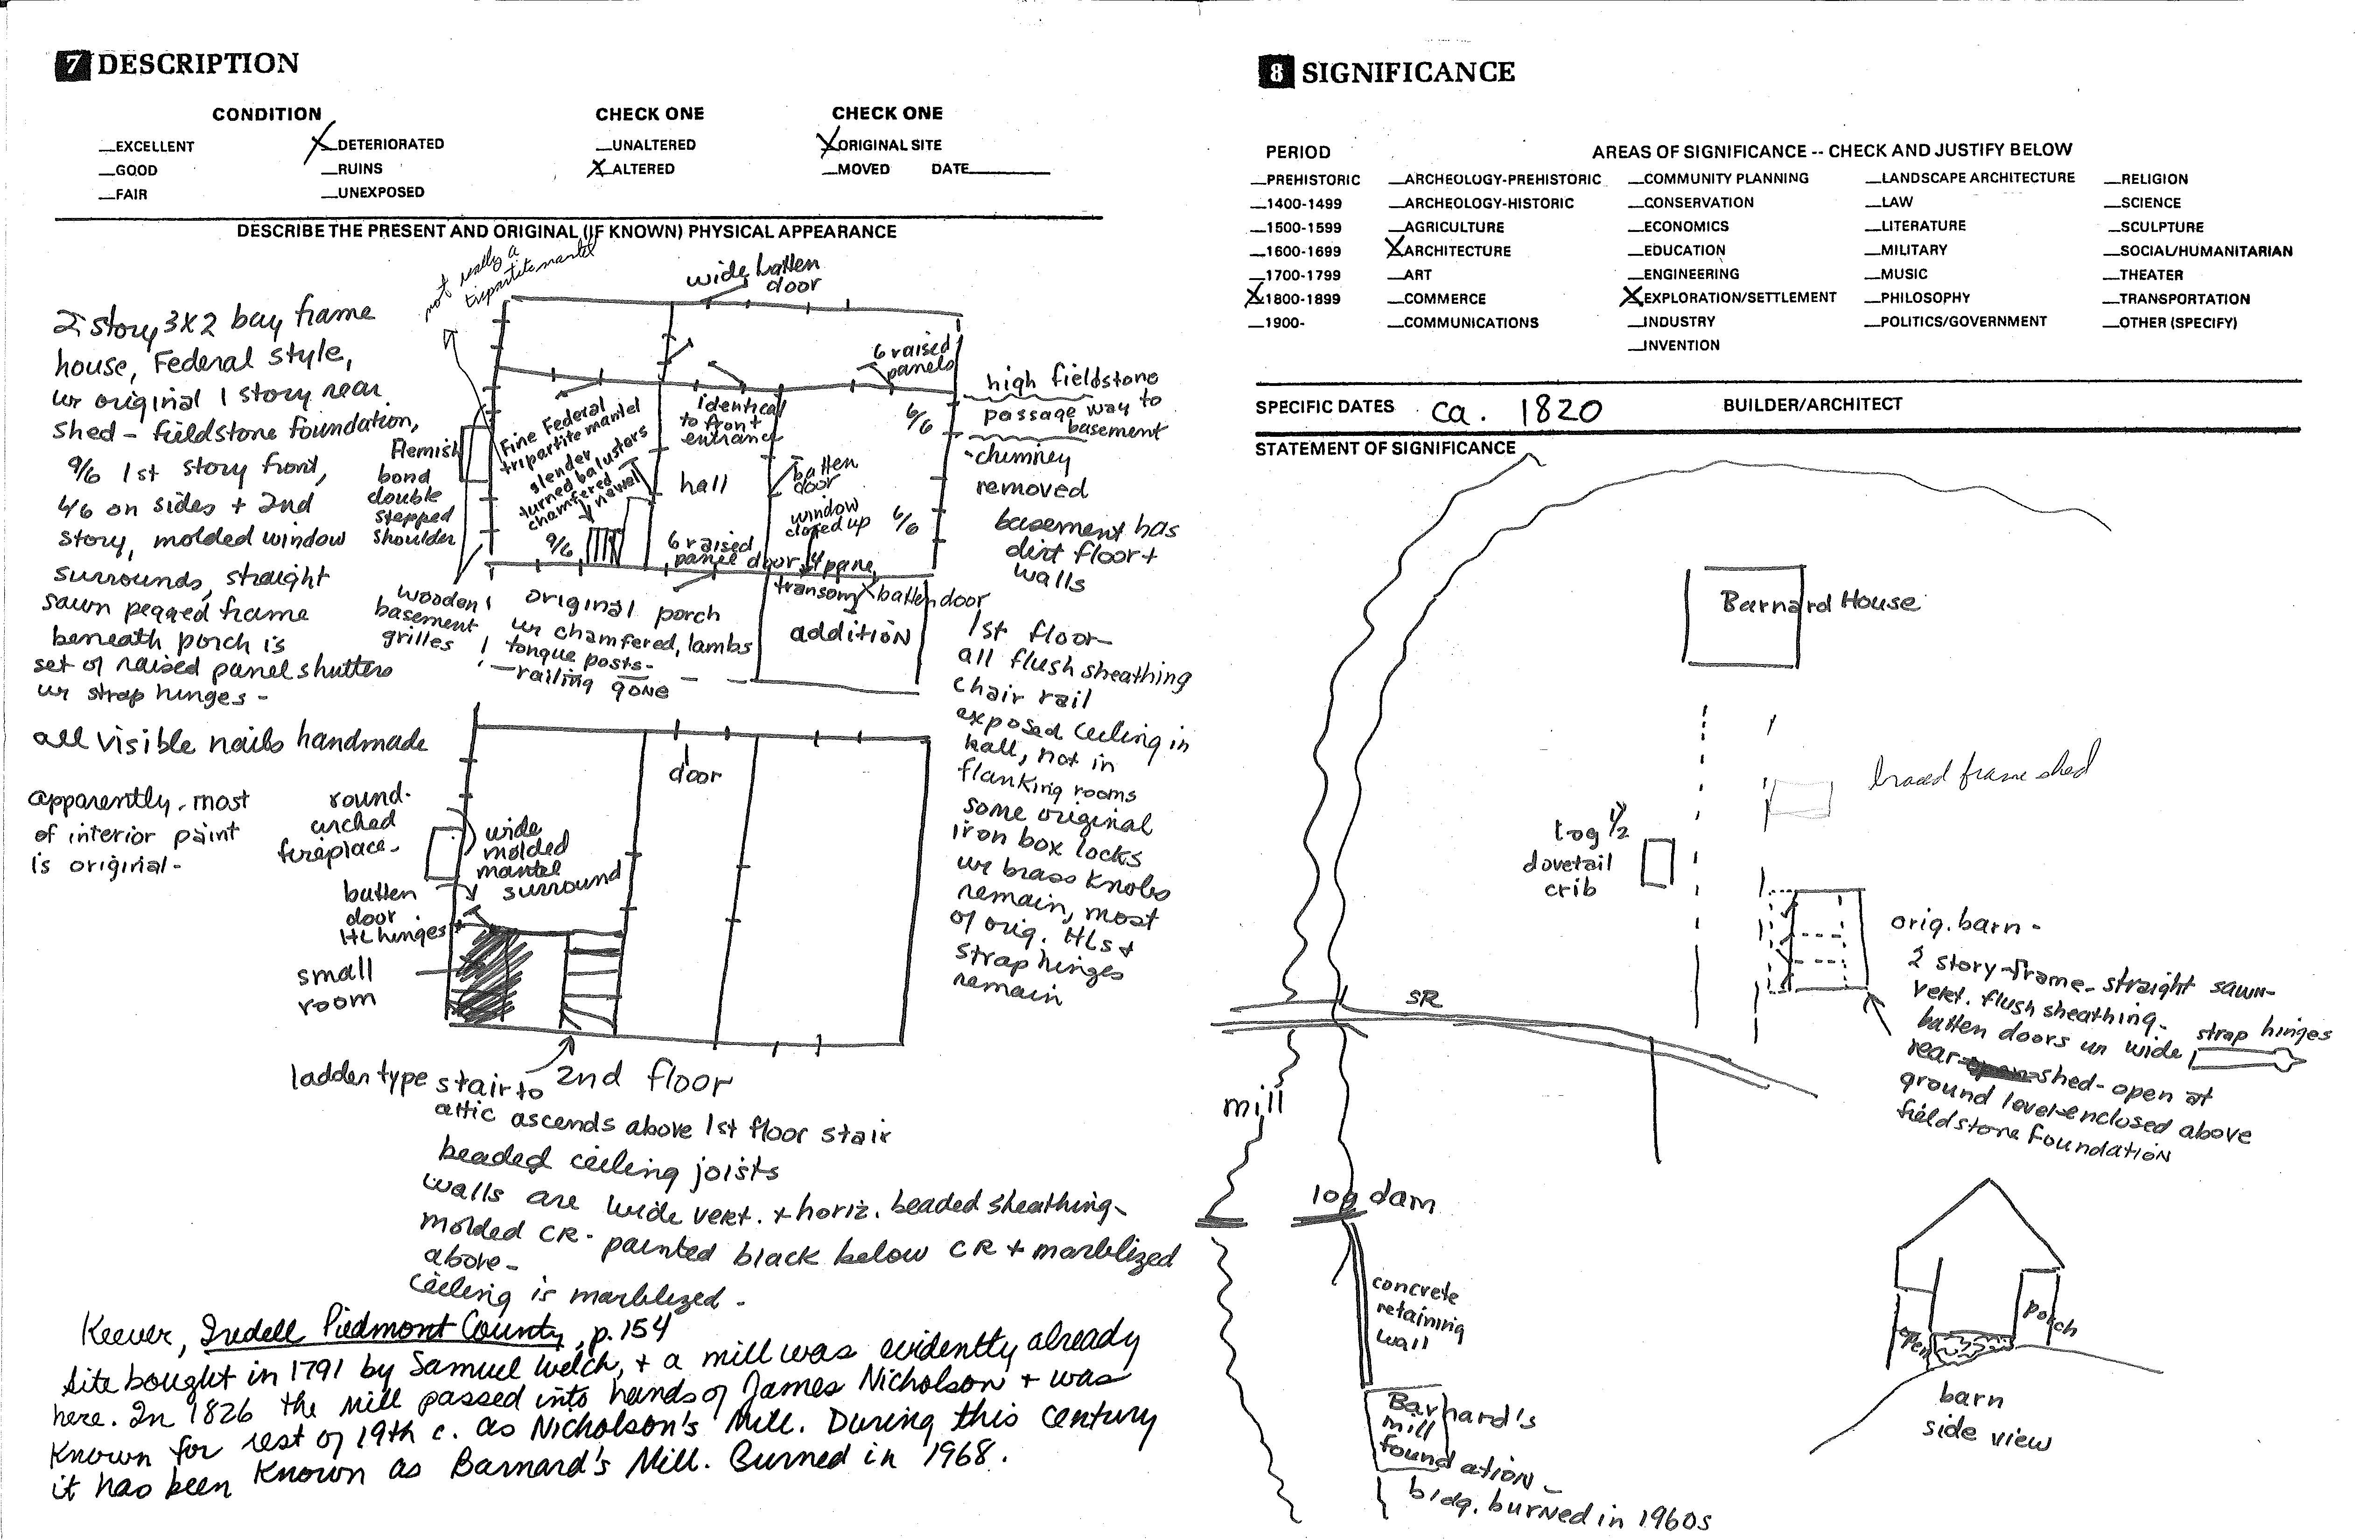 7 DESCRIPTION
CONDITION CHECK ONE CHECK ONE
EXCELLENT X DETERIORATED UNALTERED X ORIGINAL SITE
GOOD RUINS X ALTERED MOVED DATE
FAIR UNEXPOSED
DESCRIBE THE PRESENT AND ORIGINAL (IF KNOWN) PHYSICAL APPEARANCE
not really a
tripartite mantel
wide batten
door
2 story 3X2 bay frame
house, Federal style,
w original 1 story rear
shed - fieldstone foundation,
9/6 1st story front,
6/6 on sides + 2nd
story, molded window
surrounds, straight
sawn pegged frame
beneath porch is
set of raised panel shutters
w strap hinges -
all visible nails handmade
apparently - most
of interior paint
is original -
Flemish
bond
double
stepped
shoulder
Fine Federal
tripartite mantel
slender
turned balusters
chamfered
newel
9/6
identical
to front
entrance
hall
6 raised
panels
6/6
batten
door
window
closed up
6/6
6 raised
panel door, 4 pane
transom
X batten door
high fieldstone
passage way to
basement
chimney
removed
basement has
dirt floor +
walls
wooden
basement
grilles
original porch
w chamfered, lambs
tongue posts -
railing gone
addition
1st floor -
all flush sheathing
chair rail
exposed ceiling in
hall, not in
flanking rooms
some original
iron box locks
w brass knobs
remain, most
of orig. HLs +
strap hinges
remain
door
round-
arched
fireplace -
wide
molded
mantel
surround
batten
door
HL hinges
small
room
2nd floor
ladder type stair to
attic ascends above 1st floor stair
beaded ceiling joists
walls are wide vert. + horiz. beaded sheathing -
molded CR - painted black below CR + marblized
above -
ceiling is marblized -
Keever, Iredell Piedmont County, p. 154
Site bought in 1791 by Samuel Welch, + a mill was evidently already
here. In 1826 the mill passed into hands of James Nicholson + was
known for rest of 19th c. as Nicholson's Mill. During this century
it has been known as Barnard's Mill. Burned in 1968.
8 SIGNIFICANCE
PERIOD AREAS OF SIGNIFICANCE -- CHECK AND JUSTIFY BELOW
PREHISTORIC ARCHEOLOGY-PREHISTORIC COMMUNITY PLANNING LANDSCAPE ARCHITECTURE RELIGION
1400-1499 ARCHEOLOGY-HISTORIC CONSERVATION LAW SCIENCE
1500-1599 AGRICULTURE ECONOMICS LITERATURE SCULPTURE
1600-1699 X ARCHITECTURE EDUCATION MILITARY SOCIAL/HUMANITARIAN
1700-1799 ART ENGINEERING MUSIC THEATER
X 1800-1899 COMMERCE X EXPLORATION/SETTLEMENT PHILOSOPHY TRANSPORTATION
1900- COMMUNICATIONS INDUSTRY POLITICS/GOVERNMENT OTHER (SPECIFY)
INVENTION
SPECIFIC DATES ca. 1820 BUILDER/ARCHITECT
STATEMENT OF SIGNIFICANCE
Barnard House
braced frame shed
Log 1/2
dovetail
crib
orig. barn -
2 story-frame - straight sawn -
vert. flush sheathing -
batten doors w wide strap hinges
rear shed - open at
ground level - enclosed above
fieldstone foundation
SR
mill
log dam
concrete
retaining
wall
Barnard's
mill
foundation -
bldg. burned in 1960s
open
porch
barn
side view